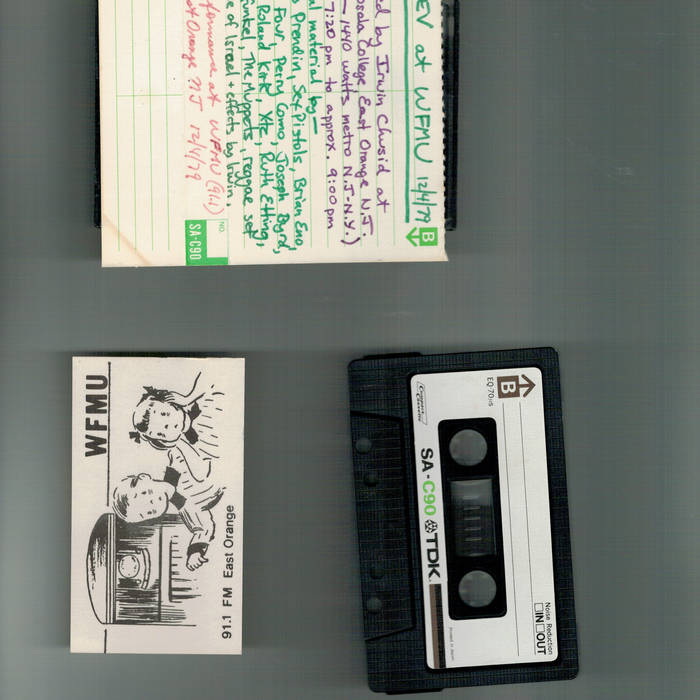 EV at WFMU 12/4/79
B
ed by Irwin Chusid at
psala College, East Orange N.J.
— 1440 watts metro N.J-N.Y.)
7:20 pm to approx. 9:00 pm
al material by—
Prendin, Sex Pistols, Brian Eno,
Four, Perry Como, Joseph Byrd,
Roland Kirk, Xtc, Ruth Etting,
unkel, The Muppets, reggae set
e of Israel + effects by Irwin.
formance at WFMU (91.1)
st Orange NJ 12/4/79
NO.
SA-C90
WFMU
91.1 FM East Orange
B
EQ 70µs
Compact Cassette
SA-C90 TDK
Noise Reduction
IN OUT